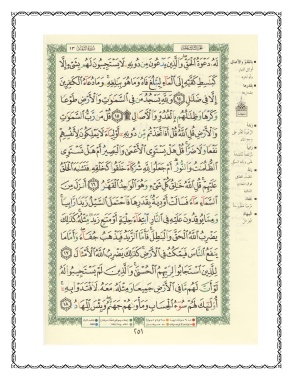 لَهُۥ دَعْوَةُ ٱلْحَقِّ وَٱلَّذِينَ يَدْعُونَ مِن دُونِهِۦ لَا يَسْتَجِيبُونَ لَهُم بِشَىْءٍ إِلَّا
كَبَٰسِطِ كَفَّيْهِ إِلَى ٱلْمَآءِ لِيَبْلُغَ فَاهُ وَمَا هُوَ بِبَٰلِغِهِۦ وَمَا دُعَآءُ ٱلْكَٰفِرِينَ
إِلَّا فِى ضَلَٰلٍ ١٤ وَلِلَّهِ يَسْجُدُ مَن فِى ٱلسَّمَٰوَٰتِ وَٱلْأَرْضِ طَوْعًا
وَكَرْهًا وَظِلَٰلُهُم بِٱلْغُدُوِّ وَٱلْءَاصَالِ ١٥ قُلْ مَن رَّبُّ ٱلسَّمَٰوَٰتِ
وَٱلْأَرْضِ قُلِ ٱللَّهُ قُلْ أَفَٱتَّخَذْتُم مِّن دُونِهِۦٓ أَوْلِيَآءَ لَا يَمْلِكُونَ لِأَنفُسِهِمْ
نَفْعًا وَلَا ضَرًّا قُلْ هَلْ يَسْتَوِى ٱلْأَعْمَىٰ وَٱلْبَصِيرُ أَمْ هَلْ تَسْتَوِى
ٱلظُّلُمَٰتُ وَٱلنُّورُ أَمْ جَعَلُوا۟ لِلَّهِ شُرَكَآءَ خَلَقُوا۟ كَخَلْقِهِۦ فَتَشَٰبَهَ ٱلْخَلْقُ
عَلَيْهِمْ قُلِ ٱللَّهُ خَٰلِقُ كُلِّ شَىْءٍ وَهُوَ ٱلْوَٰحِدُ ٱلْقَهَّٰرُ ١٦ أَنزَلَ مِنَ
ٱلسَّمَآءِ مَآءً فَسَالَتْ أَوْدِيَةٌۢ بِقَدَرِهَا فَٱحْتَمَلَ ٱلسَّيْلُ زَبَدًا رَّابِيًا
وَمِمَّا يُوقِدُونَ عَلَيْهِ فِى ٱلنَّارِ ٱبْتِغَآءَ حِلْيَةٍ أَوْ مَتَٰعٍ زَبَدٌ مِّثْلُهُۥ كَذَٰلِكَ
يَضْرِبُ ٱللَّهُ ٱلْحَقَّ وَٱلْبَٰطِلَ فَأَمَّا ٱلزَّبَدُ فَيَذْهَبُ جُفَآءً وَأَمَّا مَا
يَنفَعُ ٱلنَّاسَ فَيَمْكُثُ فِى ٱلْأَرْضِ كَذَٰلِكَ يَضْرِبُ ٱللَّهُ ٱلْأَمْثَالَ ١٧
لِلَّذِينَ ٱسْتَجَابُوا۟ لِرَبِّهِمُ ٱلْحُسْنَىٰ وَٱلَّذِينَ لَمْ يَسْتَجِيبُوا۟ لَهُۥ
لَوْ أَنَّ لَهُم مَّا فِى ٱلْأَرْضِ جَمِيعًا وَمِثْلَهُۥ مَعَهُۥ لَٱفْتَدَوْا۟ بِهِۦٓ
أُو۟لَٰٓئِكَ لَهُمْ سُوٓءُ ٱلْحِسَابِ وَمَأْوَىٰهُمْ جَهَنَّمُ وَبِئْسَ ٱلْمِهَادُ ١٨
٢٥١